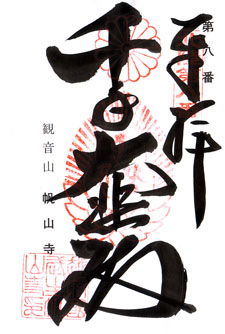 第八番
奉拝
千手大悲殿
観音山 帆山寺